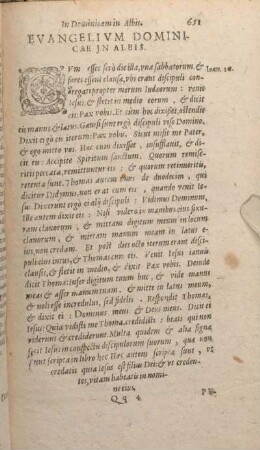 In Dominicam in Albis. 651
EVANGELIVM DOMINI-
CAE IN ALBIS.
CVm esset serò die illa, vna sabbatorum, &
fores essent clausæ, vbi erant discipuli con-
gregati propter metum Iudæorum: venit
Iesus, & stetit in medio eorum, & dicit
eis: Pax vobis. Et cùm hoc dixisset, ostendit
eis manus & latus. Gauisi sunt ergò discipuli viso Domino.
Dixit ergò eis iterum: Pax vobis. Sicut misit me Pater,
& ego mitto vos. Hoc cum dixisset, insufflauit, & di-
cit eis: Accipite Spiritum sanctum. Quorum remise-
ritis peccata, remittuntur eis: & quorum retinueritis,
retenta sunt. Thomas autem vnus de duodecim, qui
dicitur Didymus, non erat cum eis, quando venit Ie-
sus. Dixerunt ergò ei alij discipuli: Vidimus Dominum.
Ille autem dixit eis: Nisi videro in manibus eius fixuram
clauorum, & mittam digitum meum in locum
clauorum, & mittam manum meam in latus e-
ius, non credam. Et post dies octo iterum erant disci-
puli eius intus, & Thomas cum eis. Venit Iesus ianuis
clausis, & stetit in medio, & dixit: Pax vobis. Deinde
dicit Thomæ: Infer digitum tuum huc, & vide manus
meas, & affer manum tuam, & mitte in latus meum,
& noli esse incredulus, sed fidelis. Respondit Thomas,
& dixit ei: Dominus meus & Deus meus. Dixit ei
Iesus: Quia vidisti me Thoma, credidisti: beati qui non
viderunt & crediderunt. Multa quidem & alia signa
fecit Iesus in conspectu discipulorum suorum, quæ non
sunt scripta in libro hoc. Hæc autem scripta sunt, vt
credatis quia Iesus est filius Dei: & vt creden-
tes, vitam habeatis in nomi-
ne eius.
Qq 4